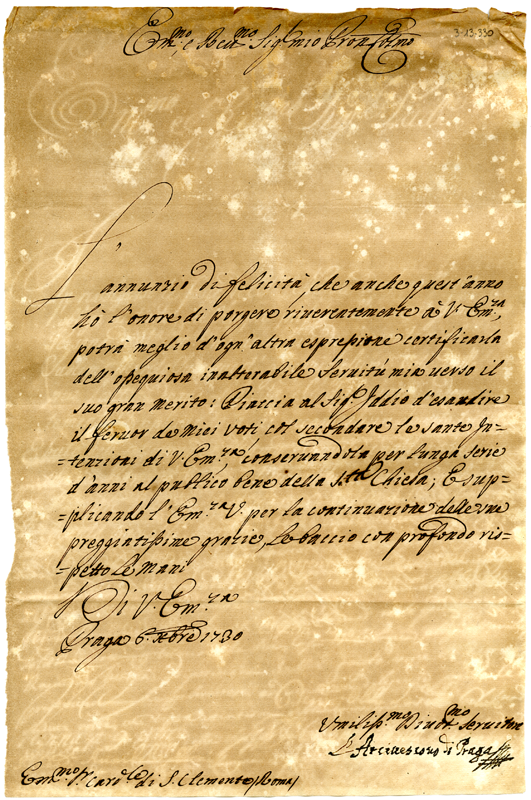 Em.mo, e Reu.mo Sig.r mio Pron Colmo
3-13-330
L'annunzio di felicità, che anche quest'anno
hò l'onore di porgere riuerentemente à V. Em.za,
potrà meglio d'ogn'altra espressione certificarla
dell'ossequiosa inalterabile Seruitù mia uerso il
suo gran merito: Piaccia al Sig.re Iddio d'esaudire
il feruor de Miei Voti col secondare le sante In-
-tenzioni di V. Em.za, conseruandola per lunga serie
d'anni al publico bene della S.ta Chiesa; E sup-
-plicando l'Em.za V. per la continuazione delle sue
preggiatissime grazie, Le baccio con profondo ris-
-petto le Mani
Di V. Em.za
Praga 6. Xbre 1730
Vmiliss.mo Diuot.mo Seruitore
L'Arciuescouo di Praga
Em.mo S.r Card.le di S. Clemente /Roma/